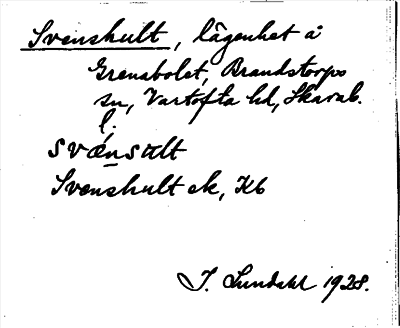 Svenshult, lägenhet å
Grenabolet, Brandstorps
sn, Vartofta hd, Skarab.
l.
svǽnsult
Svenshult ek, Kb
I. Lundahl 1928.